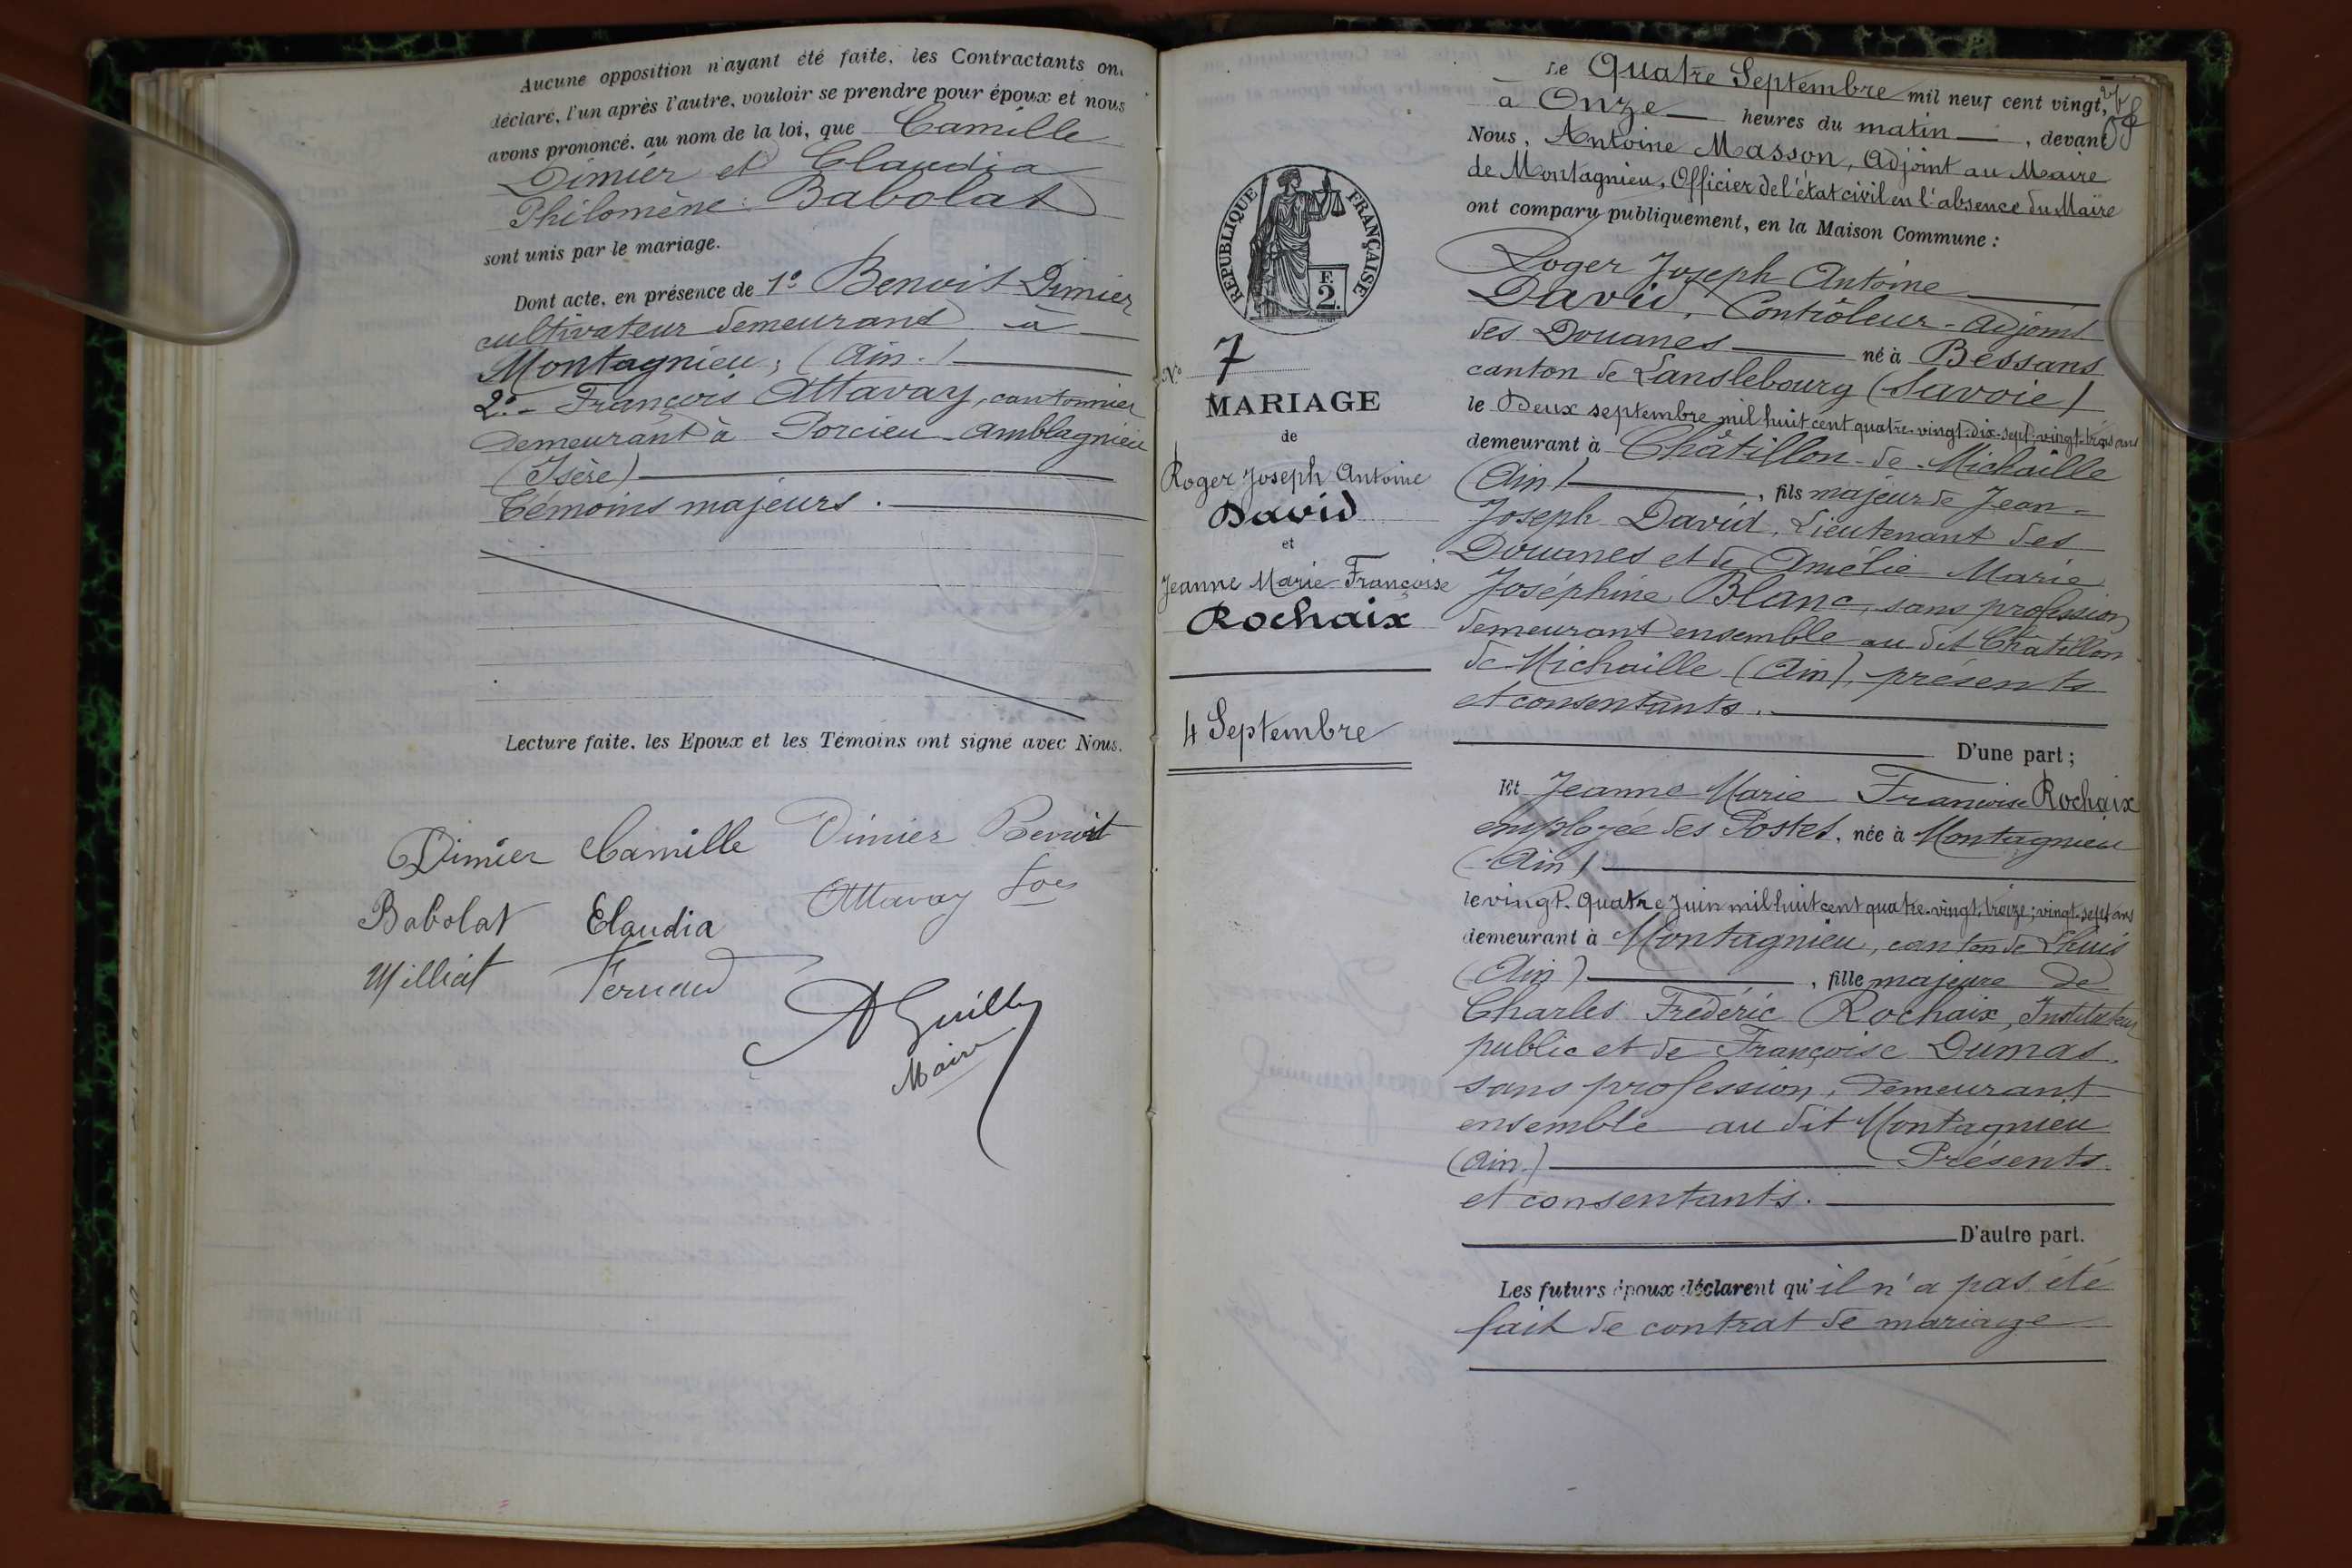 Aucune opposition n'ayant été faite, les Contractants on
déclaré, l'un après l'autre, vouloir se prendre pour époux et nous
avons prononcé, au nom de la loi, que Camille
Dimier et Claudia
Philomène Babolat
sont unis par le mariage.
Dont acte, en présence de 1º Benoit Dimier
cultivateur demeurant à
Montagnieu, (Ain.)
2º- François Attavay, cantonnier
demeurant à Porcieu-Amblagnieu
(Isère)
Témoins majeurs.
Lecture faite, les Epoux et les Témoins ont signé avec Nous.
Dimier Camille Dimier Benoit
Babolat Claudia Attavay
Milliat Fernand
Guilly
Maire
RÉPUBLIQUE FRANÇAISE
F.
2.
No 7
MARIAGE
de
Roger Joseph Antoine
David
et
Jeanne Marie-Françoise
Rochaix
4 Septembre
Le Quatre Septembre mil neuf cent vingt,
à Onze heures du matin, devant
Nous, Antoine Masson, Adjoint au Maire
de Montagnieu, Officier de l'état civil en l'absence du Maire
ont comparu publiquement, en la Maison Commune :
Roger Joseph Antoine
David, Contrôleur-adjoint
des Douanes né à Bessans
canton de Lanslebourg (Savoie)
le Deux septembre mil huit cent quatre-vingt-dix-sept; vingt-trois ans
demeurant à Châtillon-de-Michaille
(Ain), fils majeur de Jean-
Joseph David, Lieutenant des
Douanes et de Amélie Marie
Joséphine Blanc, sans profession
demeurant ensemble au dit Châtillon
de Michaille (Ain), présents
et consentants.
D'une part ;
Et Jeanne Marie Françoise Rochaix
employée des Postes, née à Montagnieu
(Ain)
le vingt-Quatre Juin mil huit cent quatre-vingt-treize; vingt-sept ans
demeurant à Montagnieu, canton de Lhuis
(Ain), fille majeure de
Charles Frédéric Rochaix, Instituteur
public et de Françoise Dumas,
sans profession, demeurant
ensemble au dit Montagnieu
(Ain) Présents
et consentants.
D'autre part.
Les futurs époux déclarent qu'il n'a pas été
fait de contrat de mariage